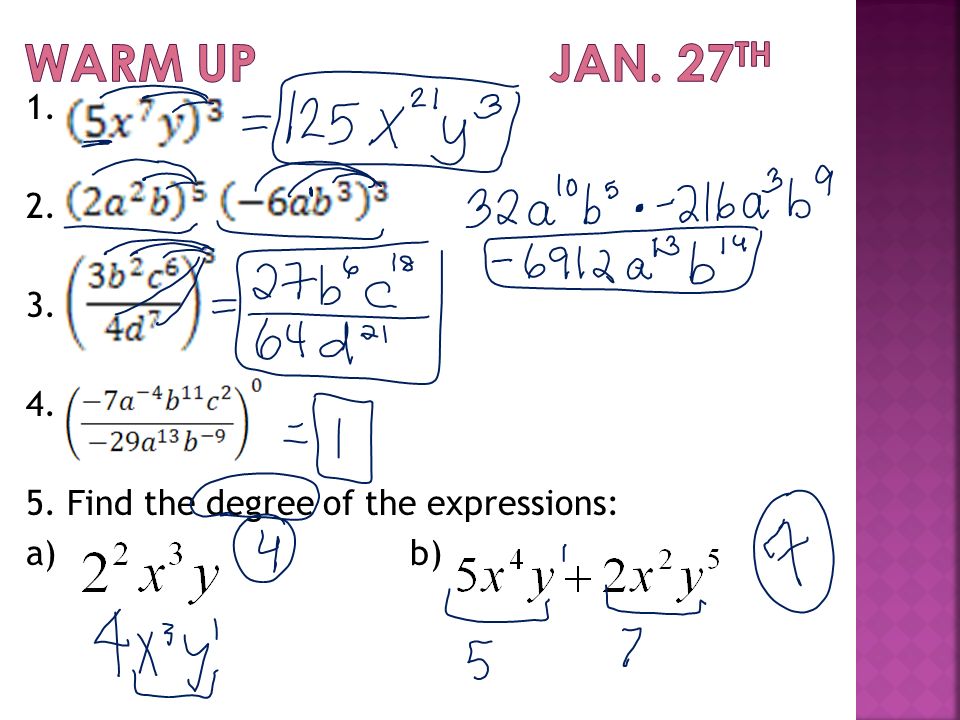 WARM UP JAN. 27TH
1. (5x⁷y)³ = 125x²¹y³
2. (2a²b)⁵ (−6a¹b³)³ 32a¹⁰b⁵ • −216a³b⁹
−6912a¹³b¹⁴
3. (3b²c⁶/4d⁷)³ = 27b⁶c¹⁸/64d²¹
4. (−7a⁻⁴b¹¹c²/−29a¹³b⁻⁹)⁰ = 1
5. Find the degree of the expressions:
a) 2²x³y 4 b) 5x⁴y¹ + 2x²y⁵ 7
4x³y¹ 5 7